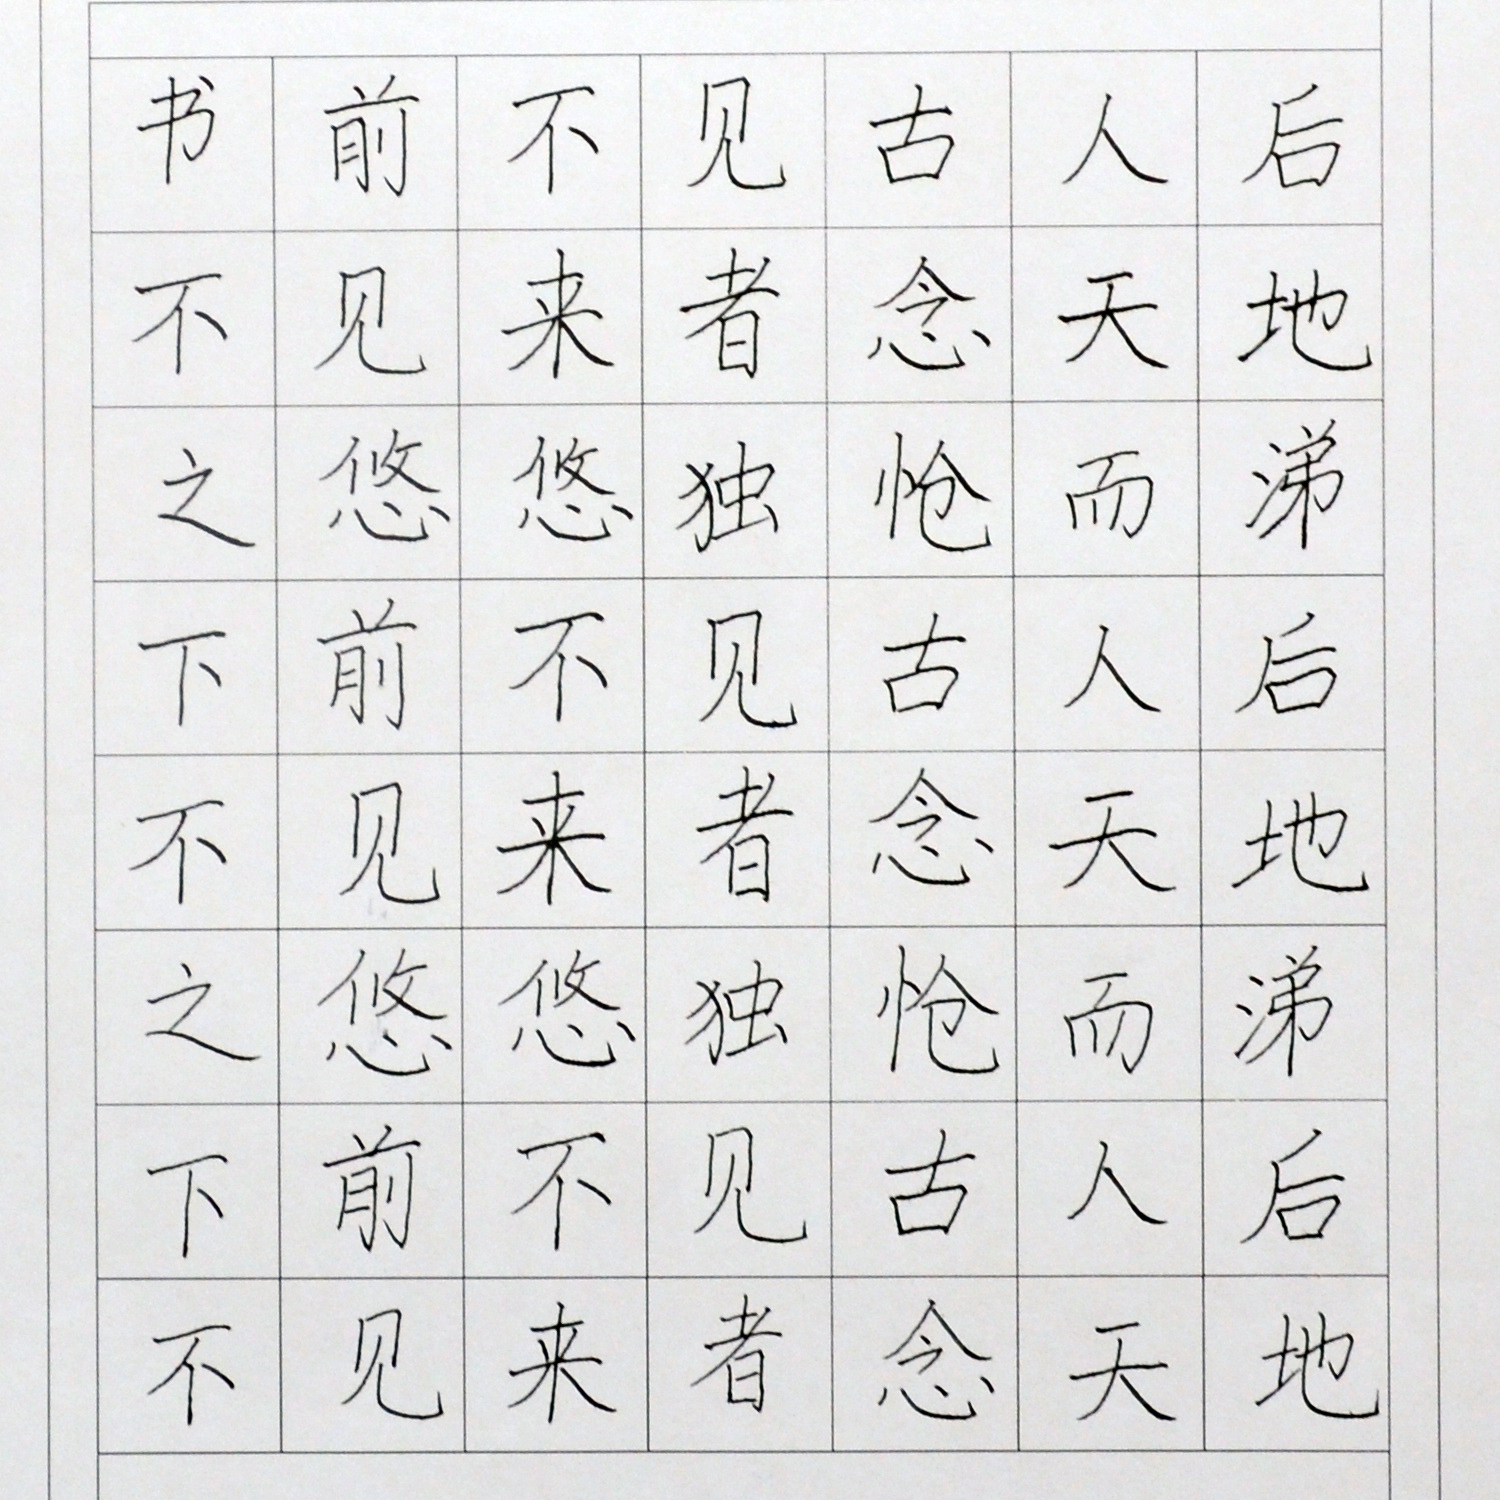 书前不见古人后
不见来者念天地
之悠悠独怆而涕
下前不见古人后
不见来者念天地
之悠悠独怆而涕
下前不见古人后
不见来者念天地